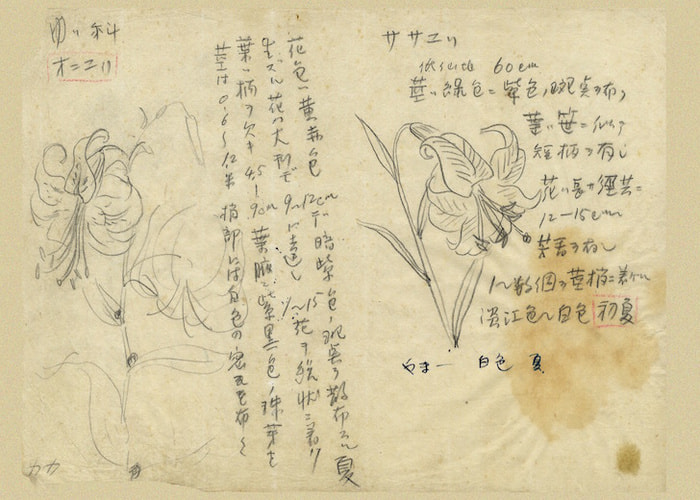 ゆり科
オニユリ
茎は0.6〜1.2米 梢部には白色の密毛を布く
葉ハ柄ヲ欠キ 4.5〜9cm 葉腋ニ紫黒色ノ珠芽を
生ズル 花ハ大形デ 9〜12cmに達し 〜15花ヲ総状ニ着け
花色ハ黄赤色デ暗紫色ノ斑点ヲ散布スル 夏
カカ
ササユリ
60cm
茎ハ緑色ニ紫色ノ斑点ヲ布ク
葉ハ笹ニ似テ
短柄ヲ有し
花ハ長サ径共ニ
12—15cm
芳香ヲ有し
1〜数個ヲ茎梢ニ着ケル
淡紅色〜白色 初夏
やまー 白色 夏